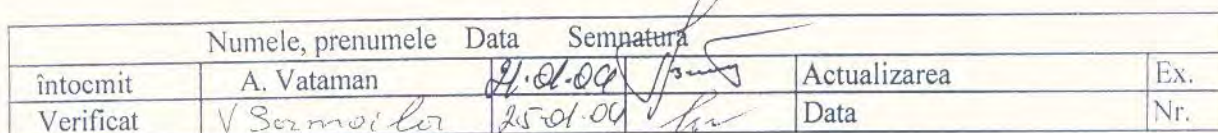 Numele, prenumele Data Semnatura
întocmit A. Vataman 21.01.09 Actualizarea Ex.
Verificat V 25.01.09 Data Nr.